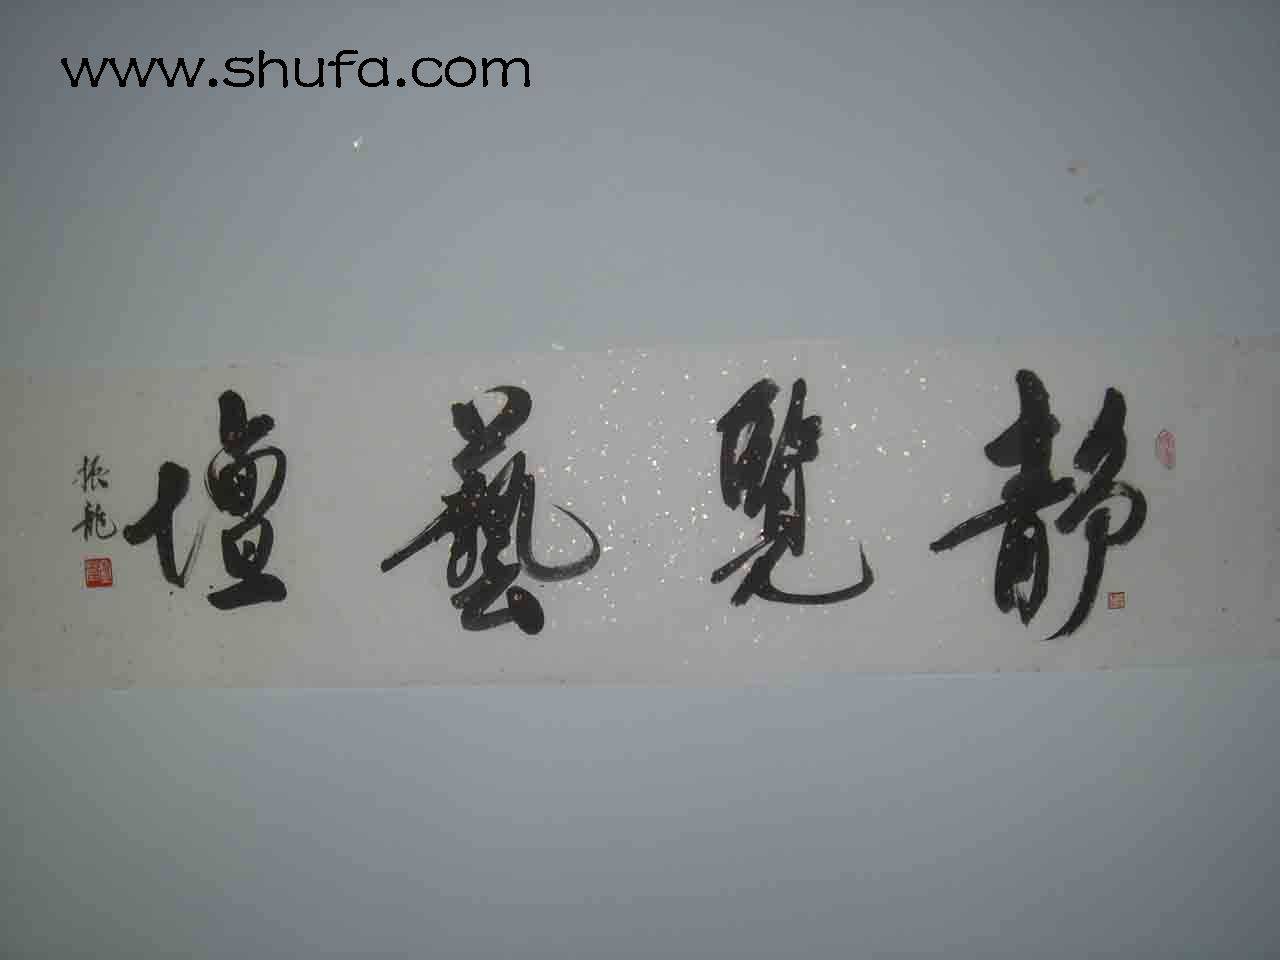 www.shufa.com
静覽藝壇
振龍